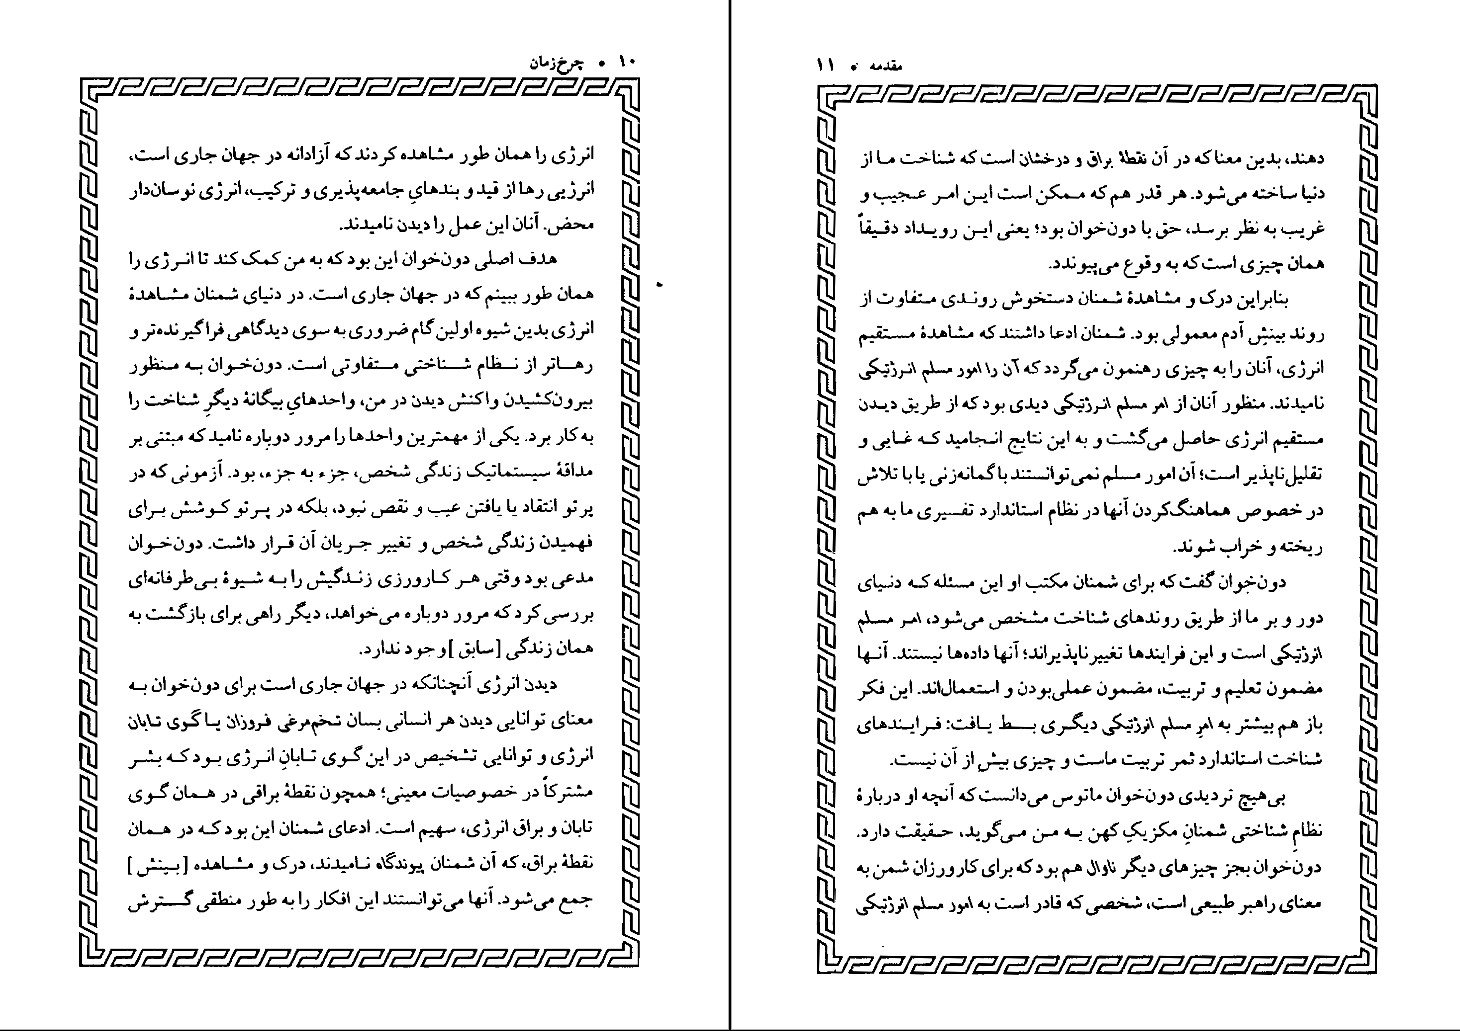 ۱۰ • چرخ‌زمان
انرژی را همان طور مشاهده کردند که آزادانه در جهان جاری است،
انرژیی رها از قید و بندهایِ جامعه‌پذیری و ترکیب، انرژی نوسان‌دار
محض. آنان این عمل را دیدن نامیدند.
هدف اصلی دون‌خوان این بود که به من کمک کند تا انرژی را
همان طور ببینم که در جهان جاری است. در دنیای شمنان مشاهدهٔ
انرژی بدین شیوه اولین گام ضروری به سوی دیدگاهی فراگیرنده‌تر و
رهاتر از نظام شناختی متفاوتی است. دون‌خوان به منظور
بیرون‌کشیدن واکنش دیدن در من، واحدهایِ بیگانهٔ دیگرِ شناخت را
به کار برد. یکی از مهمترین واحدها را مرور دوباره نامید که مبتنی بر
مداقهٔ سیستماتیک زندگی شخص، جزء به جزء، بود. آزمونی که در
پرتو انتقاد یا یافتن عیب و نقص نبود، بلکه در پرتو کوشش برای
فهمیدن زندگی شخص و تغییر جریان آن قرار داشت. دون‌خوان
مدعی بود وقتی هر کارورزی زندگیش را به شیوهٔ بی‌طرفانه‌ای
بررسی کرد که مرور دوباره می‌خواهد، دیگر راهی برای بازگشت به
همان زندگی [سابق] وجود ندارد.
دیدن انرژی آنچنانکه در جهان جاری است برای دون‌خوان به
معنای توانایی دیدن هر انسانی بسان تخم‌مرغی فروزان یا گوی تابان
انرژی و توانایی تشخیص در این گوی تابانِ انرژی بود که بشر
مشترکاً در خصوصیات معینی؛ همچون نقطهٔ براقی در همان گوی
تابان و براق انرژی، سهیم است. ادعای شمنان این بود که در همان
نقطهٔ براق، که آن شمنان پیوندگاه نامیدند، درک و مشاهده [بینش]
جمع می‌شود. آنها می‌توانستند این افکار را به طور منطقی گسترش
مقدمه • ۱۱
دهند، بدین معنا که در آن نقطهٔ براق و درخشان است که شناخت ما از
دنیا ساخته می‌شود. هر قدر هم که ممکن است این امر عجیب و
غریب به نظر برسد، حق با دون‌خوان بود؛ یعنی این رویداد دقیقاً
همان چیزی است که به وقوع می‌پیوندد.
بنابراین درک و مشاهدهٔ شمنان دستخوش روندی متفاوت از
روند بینشِ آدم معمولی بود. شمنان ادعا داشتند که مشاهدهٔ مستقیم
انرژی، آنان را به چیزی رهنمون می‌گردد که آن را امور مسلم انرژتیکی
نامیدند. منظور آنان از امر مسلم انرژتیکی دیدی بود که از طریق دیدن
مستقیم انرژی حاصل می‌گشت و به این نتایج انجامید که غایی و
تقلیل‌ناپذیر است؛ آن امور مسلم نمی‌توانستند با گمانه‌زنی یا با تلاش
در خصوص هماهنگ‌کردن آنها در نظام استاندارد تفسیری ما به هم
ریخته و خراب شوند.
دون‌خوان گفت که برای شمنان مکتب او این مسئله که دنیای
دور و بر ما از طریق روندهای شناخت مشخص می‌شود، امر مسلم
انرژتیکی است و این فرایندها تغییرناپذیراند؛ آنها داده‌ها نیستند. آنها
مضمون تعلیم و تربیت، مضمون عملی‌بودن و استعمال‌اند. این فکر
باز هم بیشتر به امرِ مسلم انرژتیکی دیگری بسط یافت: فرایندهای
شناخت استاندارد ثمر تربیت ماست و چیزی بیش از آن نیست.
بی‌هیچ تردیدی دون‌خوان ماتوس می‌دانست که آنچه او دربارهٔ
نظامِ شناختی شمنانِ مکزیکِ کهن به من می‌گوید، حقیقت دارد.
دون‌خوان بجز چیزهای دیگر ناوال هم بود که برای کارورزان شمن به
معنای راهبر طبیعی است، شخصی که قادر است به امور مسلم انرژتیکی